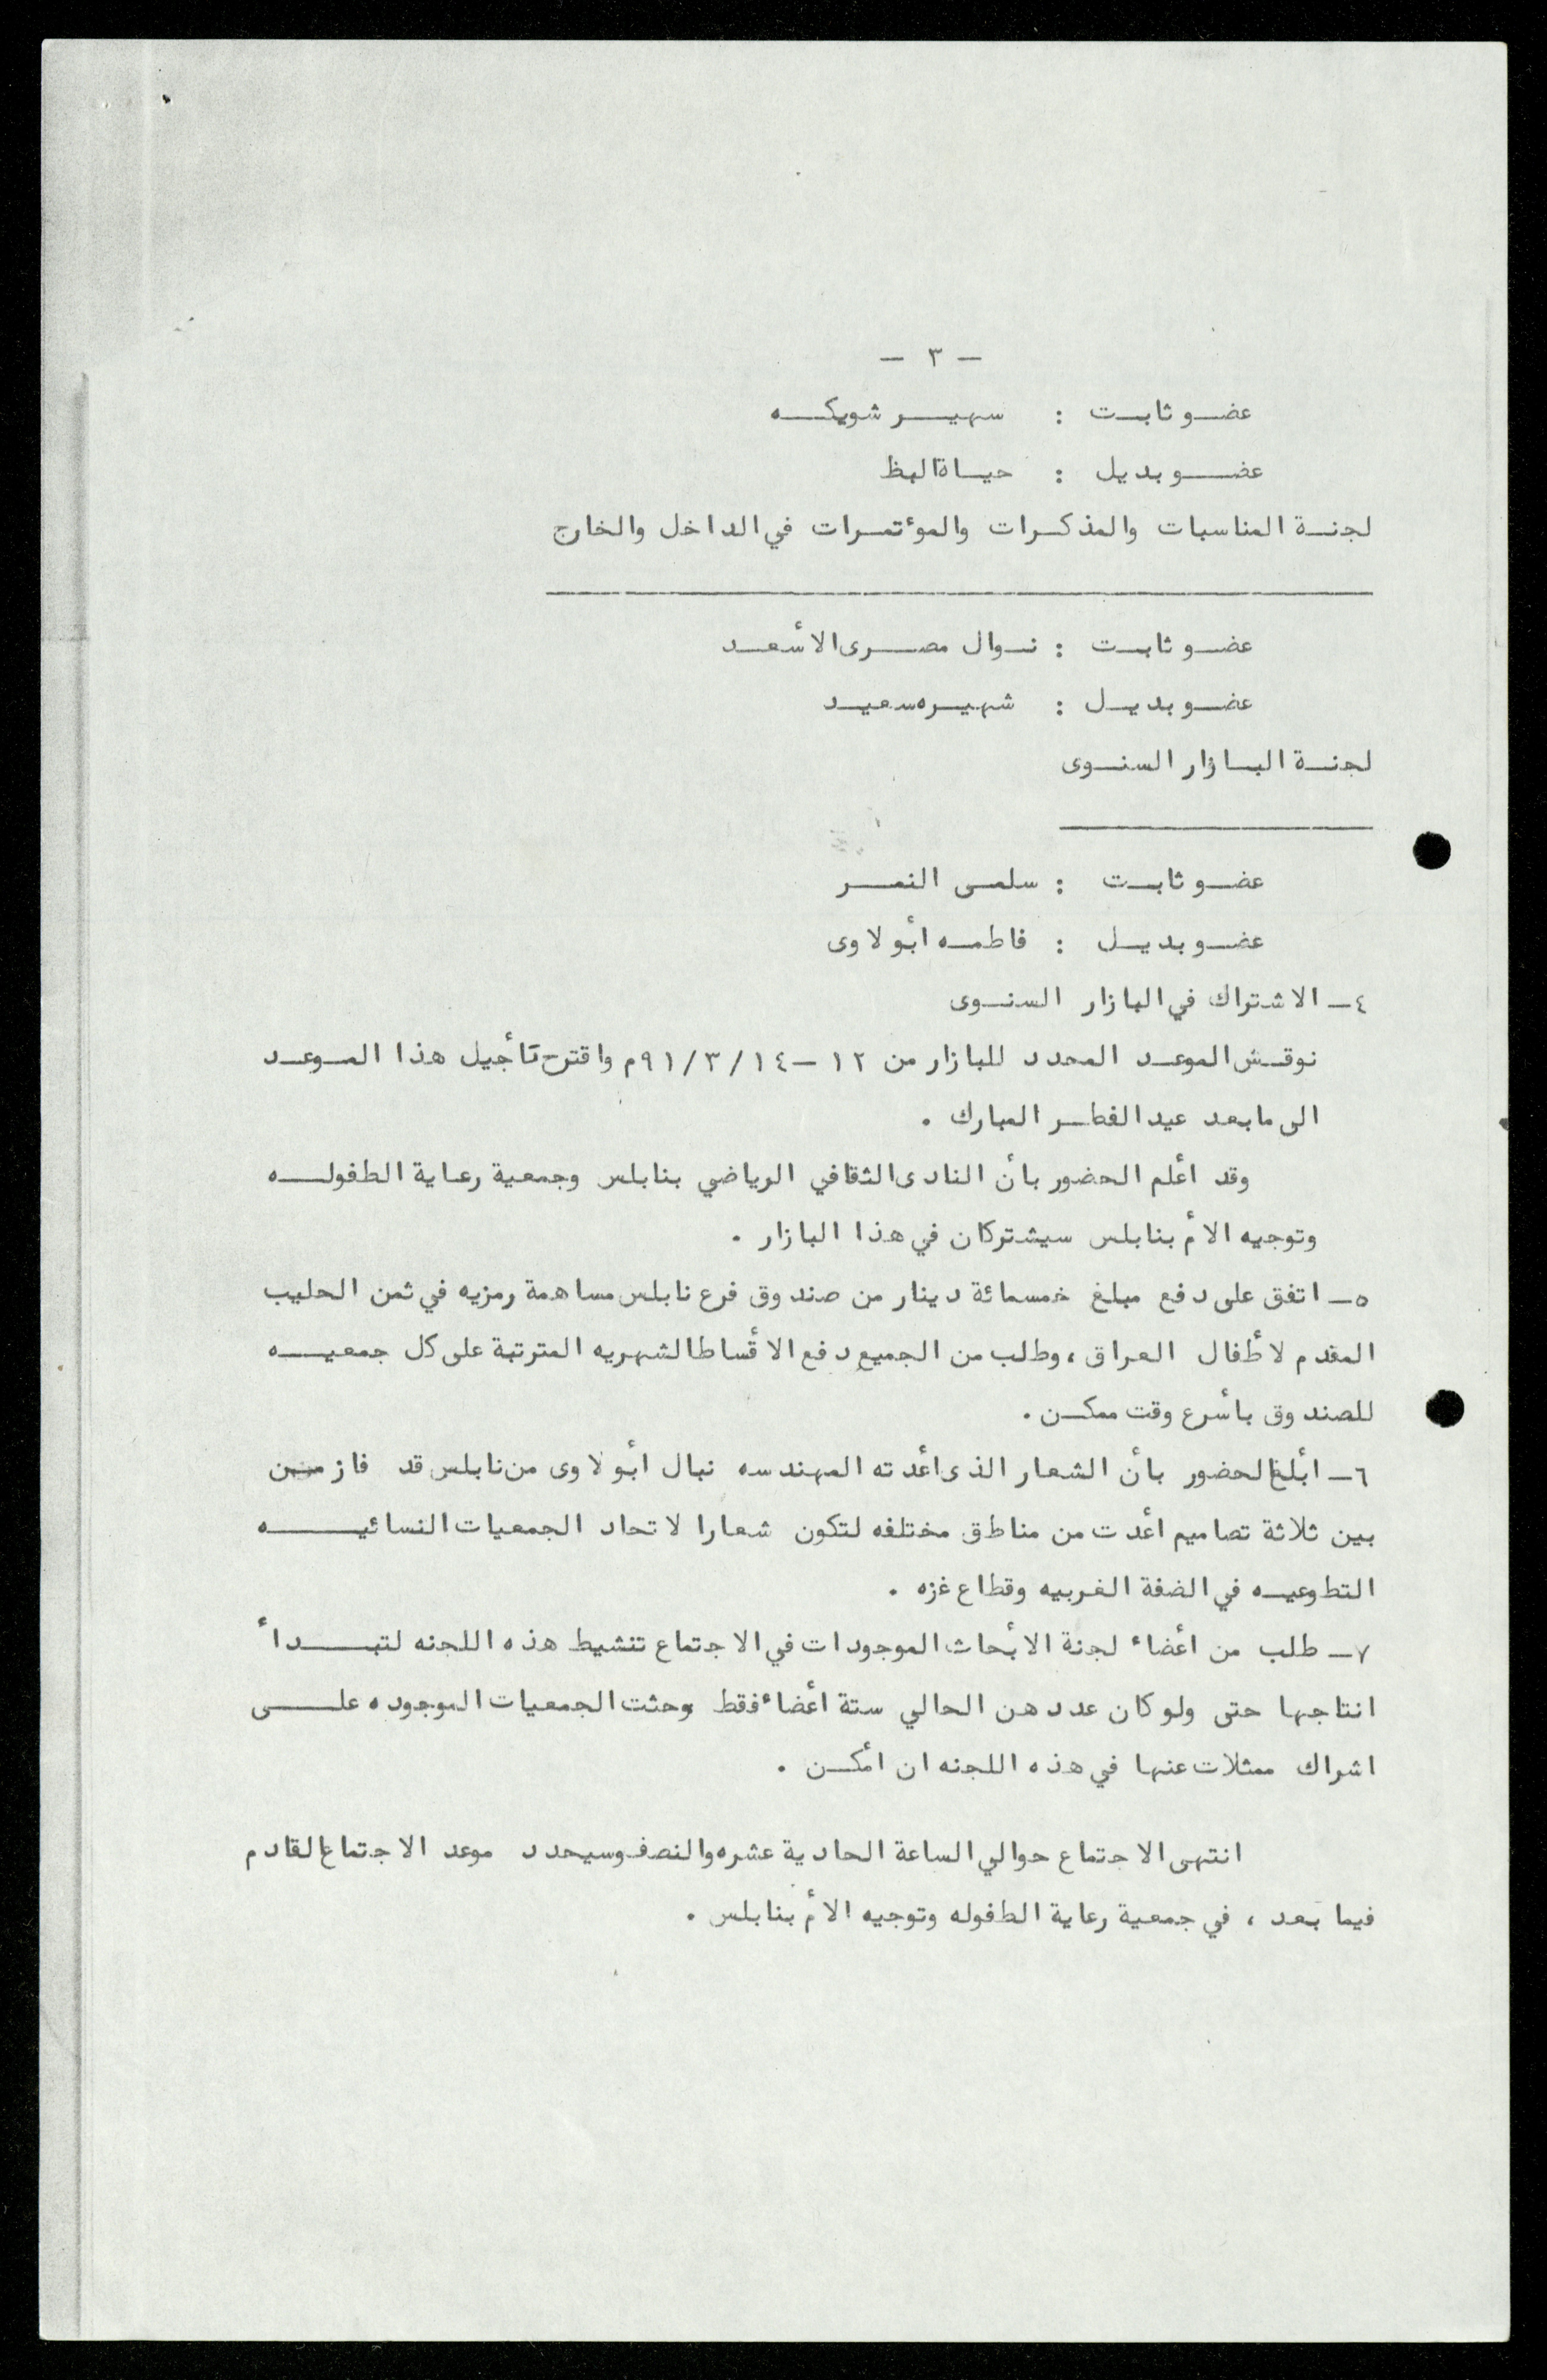 - ٣ -
عضو ثابت : سهير شويكه
عضو بديل : حياة البظ
لجنة المناسبات والمذكرات والمؤتمرات في الداخل والخارج
عضو ثابت : نوال مصرى الأسعد
عضو بديل : شهيره سعيد
لجنة البازار السنوى
عضو ثابت : سلمى النمر
عضو بديل : فاطمه أبو لاوى
٤- الاشتراك في البازار السنوى
نوقش الموعد المحدد للبازار من ١٢ - ١٤/٣/٩١م واقترح تأجيل هذا الموعد
الى ما بعد عيد الفطر المبارك .
وقد أعلم الحضور بأن النادى الثقافي الرياضي بنابلس وجمعية رعاية الطفوله
وتوجيه الأم بنابلس سيشتركان في هذا البازار .
٥- اتفق على دفع مبلغ خمسمائة دينار من صندوق فرع نابلس مساهمة رمزيه في ثمن الحليب
المقدم لأطفال العراق ، وطلب من الجميع دفع الأقساط الشهريه المترتبة على كل جمعيه
للصندوق بأسرع وقت ممكن .
٦- أبلغ الحضور بأن الشعار الذى أعدته المهندسه نبال أبو لاوى من نابلس قد فاز من
بين ثلاثة تصاميم أعدت من مناطق مختلفه لتكون شعارا لاتحاد الجمعيات النسائيه
التطوعيه في الضفة الغربيه وقطاع غزه .
٧- طلب من أعضاء لجنة الأبحاث الموجودات في الاجتماع تنشيط هذه اللجنه لتبدأ
انتاجها حتى ولو كان عددهن الحالي ستة أعضاء فقط وحثت الجمعيات الموجوده على
اشراك ممثلات عنها في هذه اللجنه ان أمكن .
انتهى الاجتماع حوالي الساعة الحادية عشره والنصف وسيحدد موعد الاجتماع القادم
فيما بعد ، في جمعية رعاية الطفوله وتوجيه الأم بنابلس .